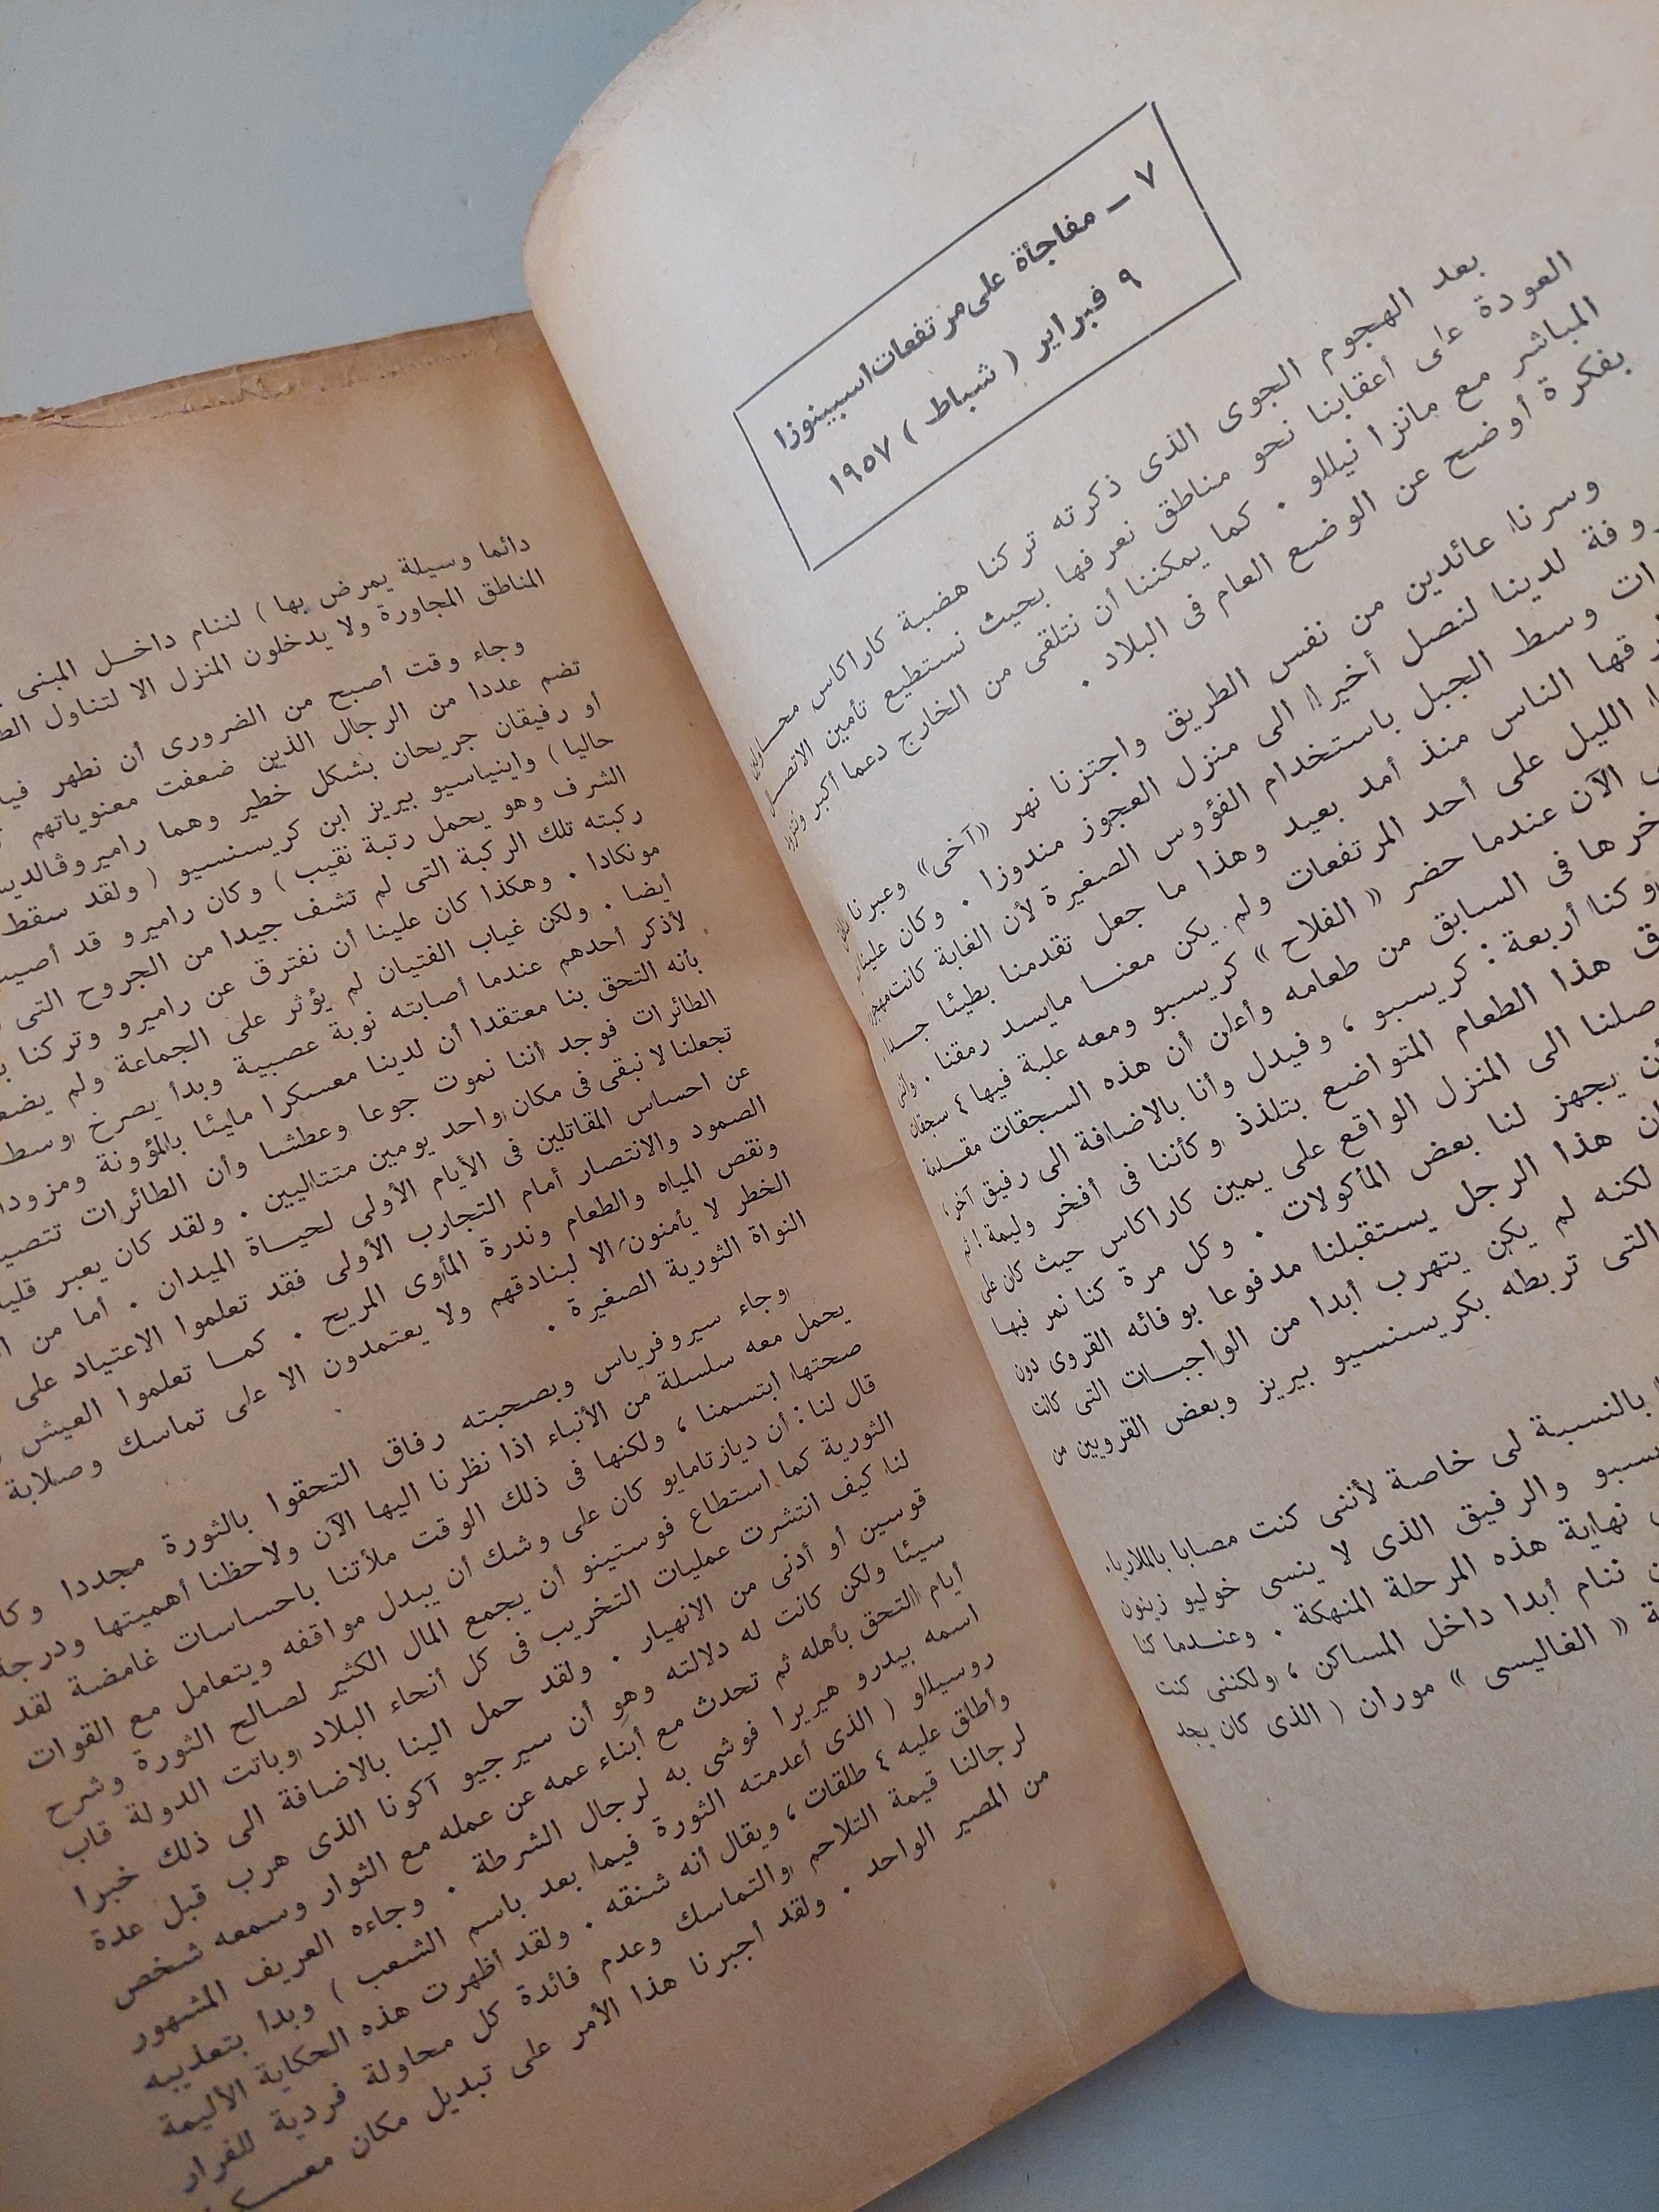 ٧ – مفاجأة على مرتفعات اسبينوزا
٩ فبراير ( شباط ) ١٩٥٧
بعد الهجوم الجوى الذى ذكرته تركنا هضبة كاراكاس محاولين
العودة على أعقابنا نحو مناطق نعرفها بحيث نستطيع تأمين الاتصـــال
المباشر مع مانزا نيللو . كما يمكننا أن نتلقى من الخارج دعما أكبر ونتزود
بفكرة أوضح عن الوضع العام فى البلاد .
وسرنا عائدين من نفس الطريق واجتزنا نهر «آخى» وعبرنا
لدينا لنصل أخيرا الى منزل العجوز مندوزا . وكان علينا
وسط الجبل باستخدام الفؤوس الصغيرة لأن الغابة كانت مهجورة
الناس منذ أمد بعيد وهذا ما جعل تقدمنا بطيئا جـــدا
الليل على أحد المرتفعات ولم يكن معنــا مايسد رمقنا .
الآن عندما حضر « الفلاح » كريسبو ومعه علبة فيها ٤ سجقات
فى السابق من طعامه وأعلن أن هذه السجقات مقـــدمة
وكنا أربعة : كريسبو ، وفيدل وأنا بالاضافة الى رفيق آخر ،
هذا الطعام المتواضع بتلذذ وكأننا فى أفخر وليمة ! ثم
الى المنزل الواقع على يمين كاراكاس حيث كان على
يجهز لنا بعض المأكولات . وكل مرة كنا نمر فيهـا
هذا الرجل يستقبلنا مدفوعا بوفائه القروى دون
لكنه لم يكن يتهرب أبدا من الواجبــات التى كانت
التى تربطه بكريسنسيو بيريز وبعض القرويين من
بالنسبة لى خاصة لأننى كنت مصابا بالملاريا،
والرفيق الذى لا ينسى خوليو زينون
نهاية هذه المرحلة المنهكة . وعنــدما كنا
ننام أبدا داخل المساكن ، ولكننى كنت
« الغاليسى » موران ( الذى كان يجد
دائما وسيلة يمرض بها ) لننام داخــل المبنى
المناطق المجاورة ولا يدخلون المنزل الا لتناول
وجاء وقت أصبح من الضرورى أن نطهر
تضم عددا من الرجال الذين ضعفت معنوياتهم
او رفيقان جريحان بشكل خطير وهما راميرو
حاليا ) واينياسيو بيريز ابن كريسنسيو ( ولقد سقط
الشرف وهو يحمل رتبة نقيب ) وكان راميرو قد
ركبته تلك الركبة التى لم تشف جيدا من الجروح التى
مونكادا . وهكذا كان علينا أن نفترق عن راميرو وتركنا
أيضا . ولكن غياب الفتيان لم يؤثر على الجماعة ولم
لأذكر أحدهم عندما أصابته نوبة عصبية وبدأ يصرخ وسط
بأنه التحق بنا معتقدا أن لدينا معسكرا مليئا بالمؤونة
الطائرات فوجد أننا نموت جوعا وعطشا وأن الطائرات
تجعلنا لا نبقى فى مكان واحد يومين متتاليين . ولقد كان يعبر
عن احساس المقاتلين فى الأيام الأولى لحيــاة الميدان . أما من
الصمود والانتصار أمام التجارب الأولى فقد تعلموا الاعتياد على
ونقص المياه والطعام وندرة المأوى المريح . كمــا تعلموا العيش
الخطر لا يأمنون الا لبنادقهم ولا يعتمدون الا على تماسك وصلابة
النواة الثورية الصغيرة .
وجاء سيروفرياس وبصحبته رفاق التحقوا بالثورة مجددا
يحمل معه سلسلة من الأنباء اذا نظرنا اليها الآن ولاحظنا أهميتها ودرجة
صحتها ابتسمنا ، ولكنها فى ذلك الوقت ملأتنا باحساسات غامضة لقد
قال لنا : أن ديازتامايو كان على وشك أن يبدل مواقفه ويتعامل مع القوات
الثورية كما استطاع فوستينو أن يجمع المال الكثير لصالح الثورة وشرح
لنا كيف انتشرت عمليات التخريب فى كل أنحاء البلاد وباتت الدولة قاب
قوسين أو أدنى من الانهيار . ولقد حمل الينا بالاضافة الى ذلك خبرا
سيئا ولكن كانت له دلالته وهو أن سيرجيو آكونا الذى هرب قبل عدة
أيام التحق بأهله ثم تحدث مع أبناء عمه عن عمله مع الثوار وسمعه شخص
اسمه بيدرو هيريرا فوشى به لرجال الشرطة . وجاءه العريف المشهور
روسيللو ( الذى أعدمته الثورة فيما بعد باسم الشعب ) وبدأ بتعذيبه
وأطلق عليه ٤ طلقات ، ويقال أنه شنقه . ولقد أظهرت هذه الحكاية الأليمة
لرجالنا قيمة التلاحم والتماسك وعدم فائدة كل محاولة فردية للفرار
من المصير الواحد . ولقد أجبرنا هذا الأمر على تبديل مكان